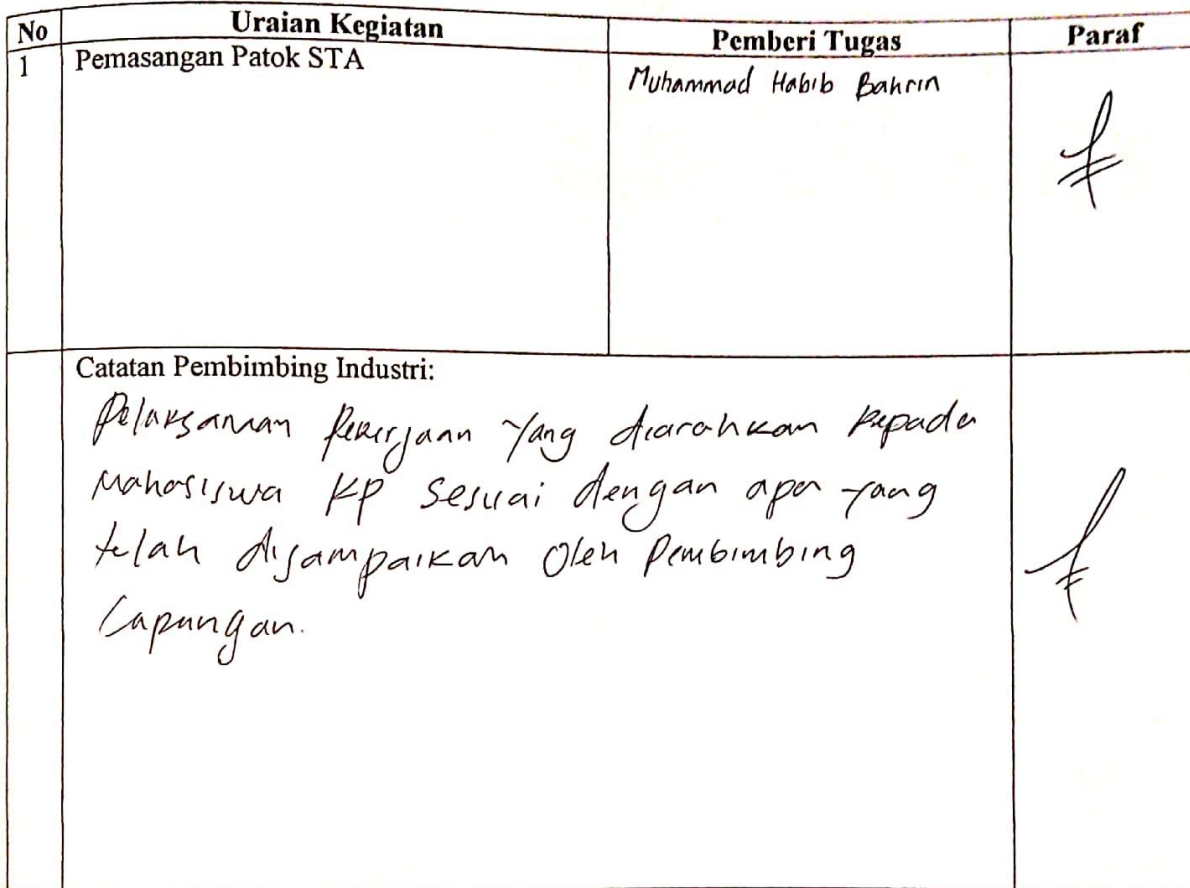 No Uraian Kegiatan Pemberi Tugas Paraf
1 Pemasangan Patok STA Muhammad Habib Bahrin
Catatan Pembimbing Industri:
Pelaksanaan Pekerjaan Yang diarahkan kepada
Mahasiswa KP Sesuai dengan apa yang
telah disampaikan Oleh Pembimbing
Lapangan.